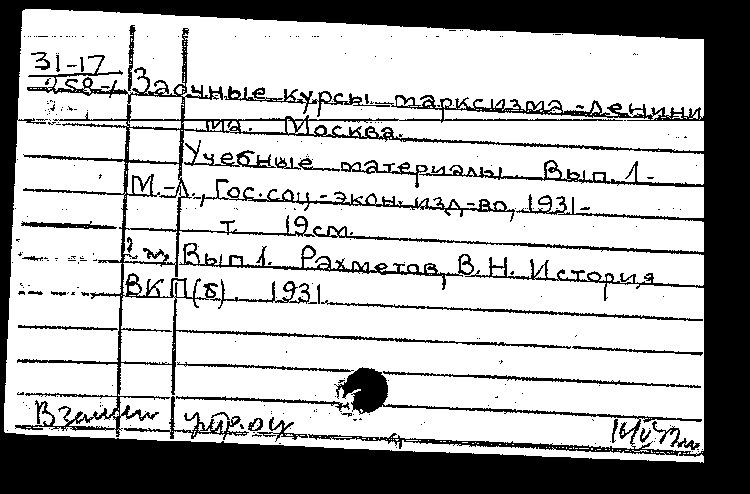 31-17
258-1 Заочные курсы марксизма-ленини
ма. Москва.
Учебные материалы Вып. 1-
М.-Л., Гос. соц.-экон. изд-во, 1931-
т. 19 см.
Вып 1. Рахметов, В.Н. История
ВКП(б). 1931.
Взамен